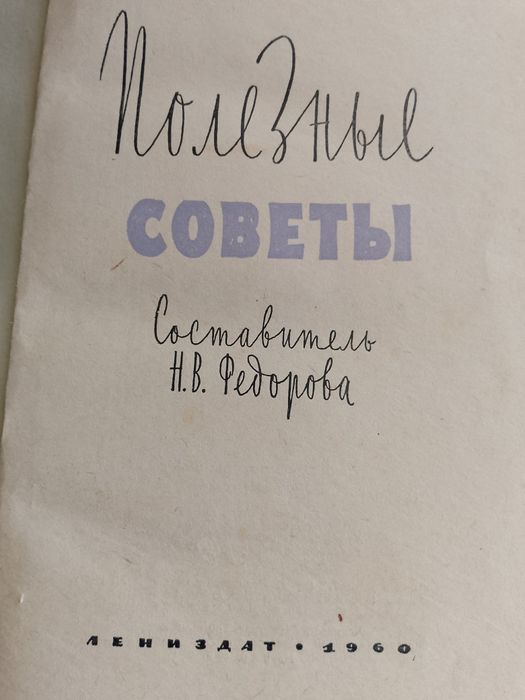 Полезные
СОВЕТЫ
Составитель
Н.В. Федорова
ЛЕНИЗДАТ • 1960